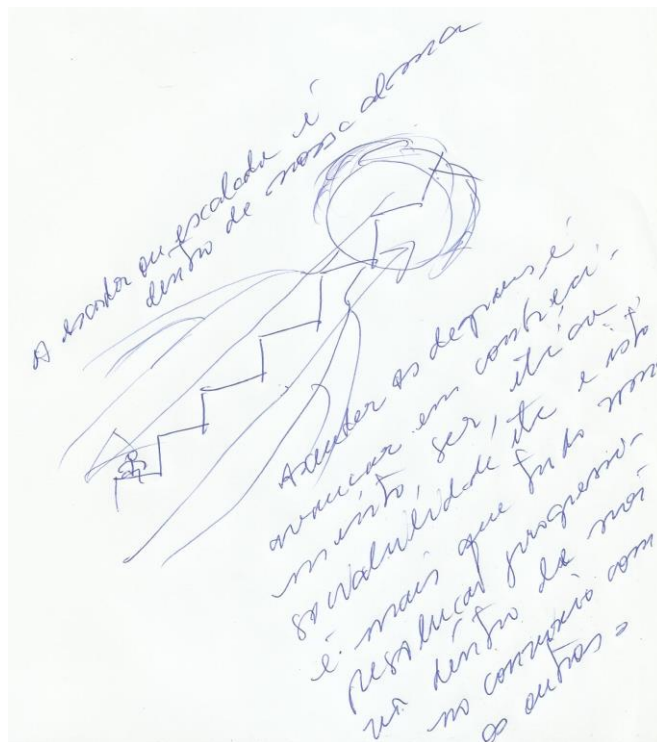 A escada ou escalada é
dentro de nossa alma
os degraus é
avançar em conheci-
mento, ser, ética,
sociabilidade etc e isto
é mais que tudo uma
resolução progressi-
dentro de nós
no convívio com
os outros =